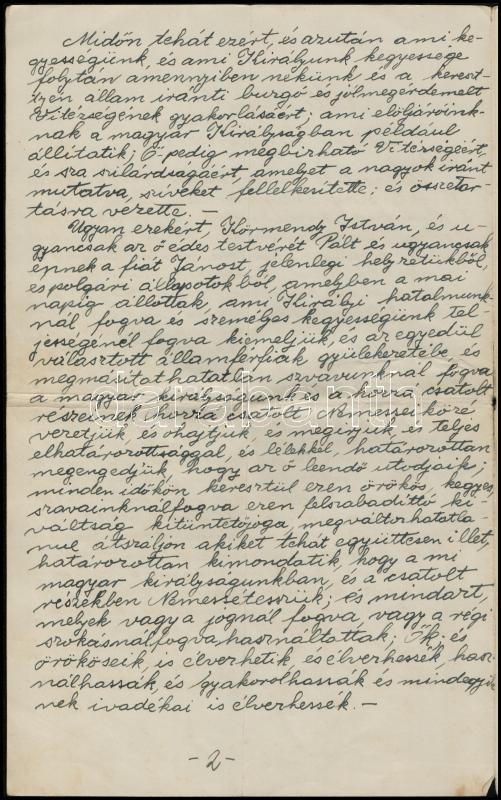 Midőn tehát ezért, és azután ami ke-
gyességünk, és ami Királyunk kegyessége
folytán amennyiben nekünk és a kereszt-
tyén állam iránti buzgó és jólmegérdemelt
Vitézségének gyakorlásáért; ami elöljáróink-
nak a magyar Királyságban például
állítatik; Ő pedig megbízható Vitézségéért,
és szilárdságáért amelyet a nagyok iránt
mutatva, szíveket fellelkesítette; és összetar-
tásra vezette. —
Ugyan ezekért, Körmendy István, és u-
gyancsak az ő édes testvérét Pált és ugyancsak
ennek a fiát Jánost, jelenlegi helyzetükből,
és polgári állapotokból, amelyben a mai
napig állottak, ami Királyi hatalmunk-
nál fogva és személyes kegyességünk tel-
jességénél fogva kiemeljük, és az egyedül
választott államférfiák gyülekezetébe, és
megmásíthatatlan szavunknál fogva
a magyar királyságunk és a hozzá csatolt
részeinek hozzá csatolt Nemesei közé
vezetjük, és óhajtjuk, és megírjuk és teljes
elhatározottsággal, és lélekkel, határozottan
megengedjük, hogy az ő leendő utódjaik;
minden időkön keresztül ezen örökös, kegyes
szavainknál fogva ezen felszabadító ki-
váltság kitüntetőjoga, megváltozhatatla
nul átszáljon akiket tehát együttesen illet,
határozottan kimondatik, hogy a mi
magyar királyságunkban, és a csatolt
részekben Nemessé tesszük; és mindazt,
melyek vagy a jognál fogva, vagy a régi
szokásnál fogva, használtattak; Ők; és
örököseik, is élvezhetik, és élvezhessék, hasz-
nálhassák, és gyakorolhassák és mindegyik
nek ivadékai is élvezhessék. —
-2-
darabanth